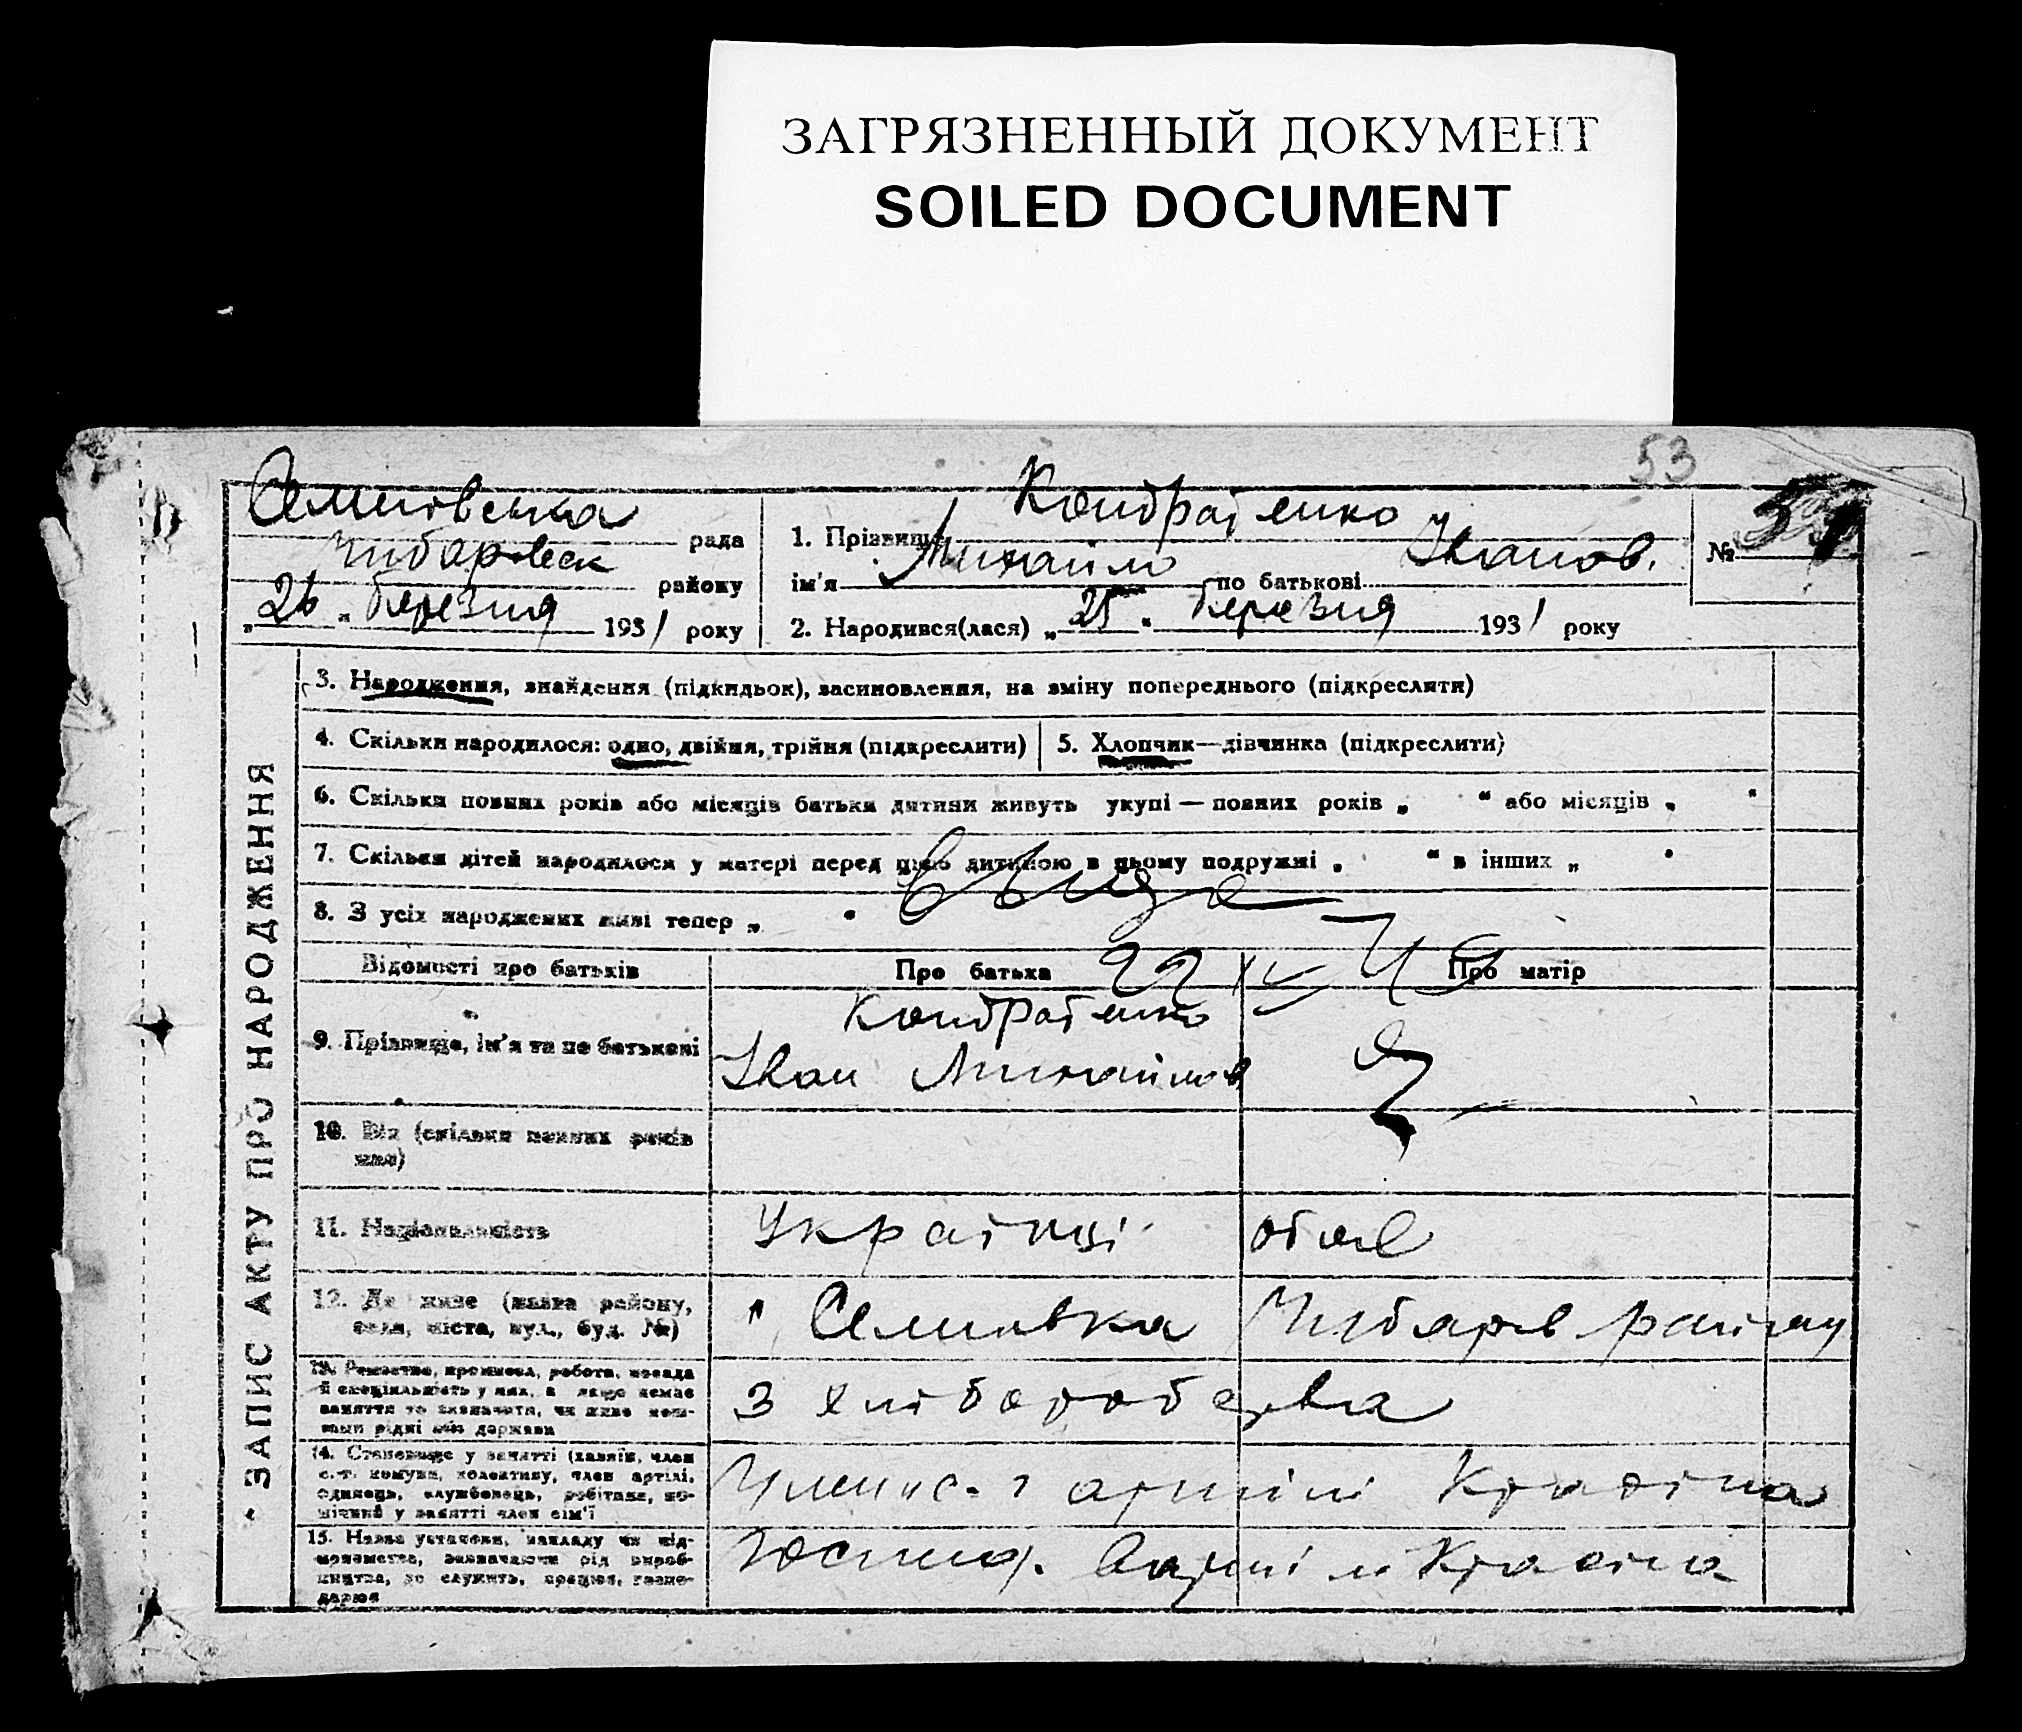 ЗАГРЯЗНЕННЫЙ ДОКУМЕНТ
SOILED DOCUMENT
53
рада
району
„26“ березня 1931 року
1. Прізвище Кондратенко
ім'я Михайло по батькові Іванов.
2. Народився(лася) „25“ березня 1931 року
№
ЗАПИС АКТУ ПРО НАРОДЖЕННЯ
3. Народження, знайдення (підкидьок), засиновлення, на зміну попереднього (підкреслити)
4. Скільки народилося: одно, двійня, трійня (підкреслити)
5. Хлопчик—дівчинка (підкреслити)
6. Скільки повних років або місяців батьки дитини живуть укупі — повних років „ “ або місяців „ “
7. Скільки дітей народилося у матері перед цією дитиною в цьому подружжі „ “ в інших „ “
8. З усіх народжених живі тепер „ “
Відомості про батьків
Про батька
Про матір
9. Прізвище, ім'я та по батькові
Кондратенко
Іван Михайлов
10. Вік (скільки повних років має)
11. Національність
Українці
12. Де живе (назва району, села, міста, вул., буд. №)
району
13. Ремество, промисел, робота, посада
й спеціяльність у них, а якщо немає
заняття то визначити, чи живе кош-
тами рідні або держави
З хліборобства
14. Становище у занятті (хазяїн, член
с.-г. комуни, колективу, член артілі,
одинець, службовець, робітник, по-
мічний у занятті член сім'ї
артілі
15. Назва установи, закладу чи під-
приємства, зазначаючи рід вироб-
ництва, де служить, працює, госпо-
дарює